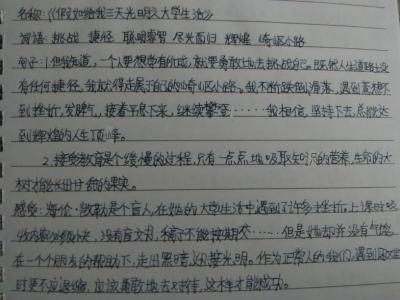 名称:《假如给我三天光明》之大学生活》
词语:挑战 捷径 聪明睿智 尽兴而归 辉煌 崎岖小路
句子:1.但我知道,一个人要想学有所成,就要勇敢地去挑战自己。既然人生道路上没
有任何捷径,我就得走属于自己的崎岖小路。我不断跌倒、滑落,遇到意想不
到挫折,发脾气,接着平息下来,继续攀登……我相信,坚持下去,总能达
到辉煌的人生顶峰。
2.接受教育是个缓慢的过程,只有一点点地吸取知识的营养,生命的大
树才能长出甘甜的果实。
感受:海伦·凯勒是个盲人,在她的大学生活中遇到了许多挫折:上课时吸
收内容必须快,没有盲文书,稿子不能按期交……但是她却并没有气馁
在一个个朋友的帮助下,走出黑暗,迎接光明。作为正常人的我们,遇到困难
时更不应退缩,应该勇敢地去对待,这样才能成功。